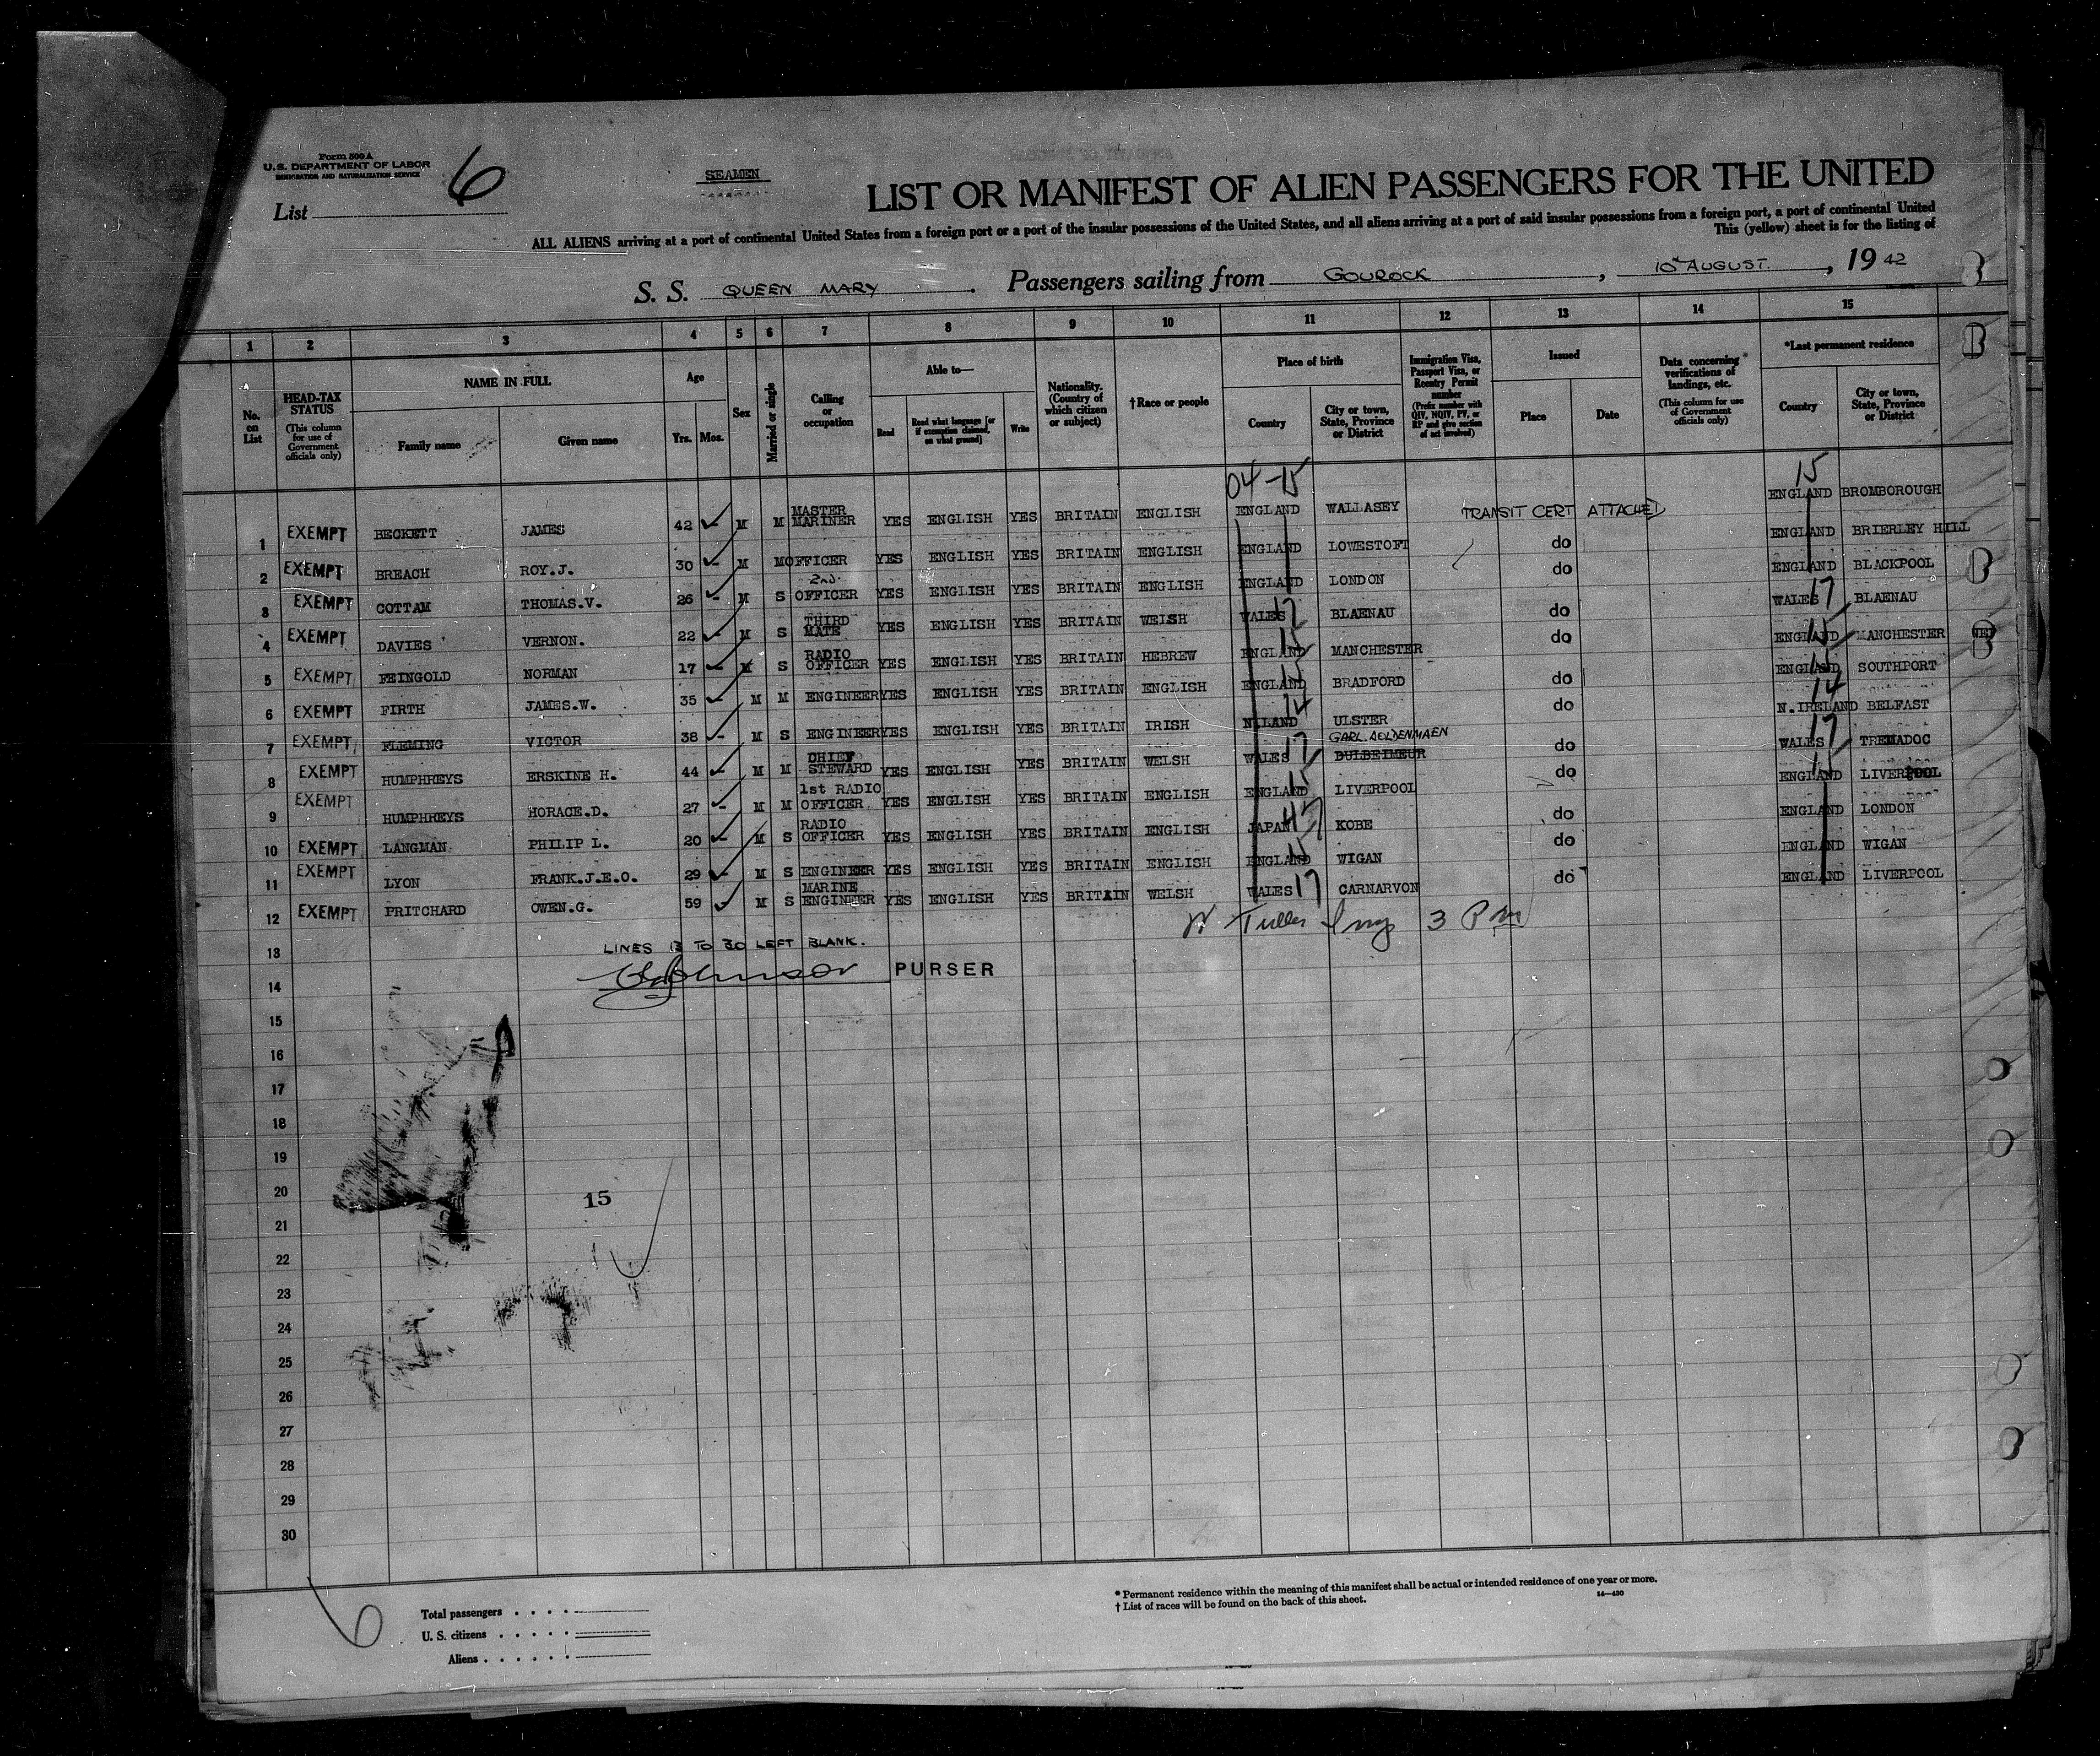 Form 500 A
U. S. DEPARTMENT OF LABOR
IMMIGRATION AND NATURALIZATION SERVICE
List 6
SEAMEN
LIST OR MANIFEST OF ALIEN PASSENGERS FOR THE UNITED
ALL ALIENS arriving at a port of continental United States from a foreign port or a port of the insular possessions of the United States, and all aliens arriving at a port of said insular possessions from a foreign port, a port of continental United
This (yellow) sheet is for the listing of
S. S. QUEEN MARY. Passengers sailing from GOUROCK, 10th AUGUST., 19 42
1 2 3 4 5 6 7 8 9 10 11 12 13 14 15
No. on List
HEAD-TAX STATUS (This column for use of Government officials only)
NAME IN FULL
Family name
Given name
Age
Yrs. Mos.
Sex
Married or single
Calling or occupation
Able to—
Read
Read what language [or if exemption claimed, on what ground]
Write
Nationality. (Country of which citizen or subject)
†Race or people
Place of birth
Country
City or town, State, Province or District
Immigration Visa, Passport Visa, or Reentry Permit number
(Prefix number with QIV, NQIV, PV, or RP and give section of act involved)
Issued
Place
Date
Data concerning verifications of landings, etc.
(This column for use of Government officials only)
*Last permanent residence
Country
City or town, State, Province or District
04-15
15
1 EXEMPT BECKETT JAMES 42 – M M MASTER MARINER YES ENGLISH YES BRITAIN ENGLISH ENGLAND WALLASEY TRANSIT CERT ATTACHED ENGLAND BROMBOROUGH
2 EXEMPT BREACH ROY.J. 30 – M M OFFICER YES ENGLISH YES BRITAIN ENGLISH ENGLAND LOWESTOFT do ENGLAND BRIERLEY HILL
3 EXEMPT COTTAM THOMAS.V. 26 – M S 2nd. OFFICER YES ENGLISH YES BRITAIN ENGLISH ENGLAND LONDON do ENGLAND BLACKPOOL
4 EXEMPT DAVIES VERNON. 22 – M S THIRD MATE YES ENGLISH YES BRITAIN WELSH WALES 17 BLAENAU do WALES 17 BLAENAU
5 EXEMPT FEINGOLD NORMAN 17 – M S RADIO OFFICER YES ENGLISH YES BRITAIN HEBREW ENGLAND 15 MANCHESTER do ENGLAND 15 MANCHESTER
6 EXEMPT FIRTH JAMES.W. 35 – M M ENGINEER YES ENGLISH YES BRITAIN ENGLISH ENGLAND 15 BRADFORD do ENGLAND 15 SOUTHPORT
7 EXEMPT FLEMING VICTOR 38 – M S ENGINEER YES ENGLISH YES BRITAIN IRISH N.ILAND 14 ULSTER do N.IRELAND 14 BELFAST
8 EXEMPT HUMPHREYS ERSKINE H. 44 – M M CHIEF STEWARD YES ENGLISH YES BRITAIN WELSH WALES 17 do WALES 17 TREMADOC
9 EXEMPT HUMPHREYS HORACE.D. 27 – M M 1st RADIO OFFICER. YES ENGLISH YES BRITAIN ENGLISH ENGLAND 15 LIVERPOOL do ENGLAND 15 LIVERPOOL
10 EXEMPT LANGMAN PHILIP L. 20 – M S RADIO OFFICER YES ENGLISH YES BRITAIN ENGLISH JAPAN KOBE do ENGLAND LONDON
11 EXEMPT LYON FRANK.J.E.O. 29 – M S ENGINEER YES ENGLISH YES BRITAIN ENGLISH ENGLAND 15 WIGAN do ENGLAND WIGAN
12 EXEMPT PRITCHARD OWEN.G. 59 M S MARINE ENGINEER YES ENGLISH YES BRITAIN WELSH WALES 17 CARNARVON do ENGLAND LIVERPOOL
3 P m
13 LINES 13 TO 30 LEFT BLANK.
14 PURSER
15
16
17
18
19
20 15
21
22
23
24
25
26
27
28
29
30
6
Total passengers . . . .
U. S. citizens . . . . .
Aliens . . . . . .
* Permanent residence within the meaning of this manifest shall be actual or intended residence of one year or more.
† List of races will be found on the back of this sheet.
14—430